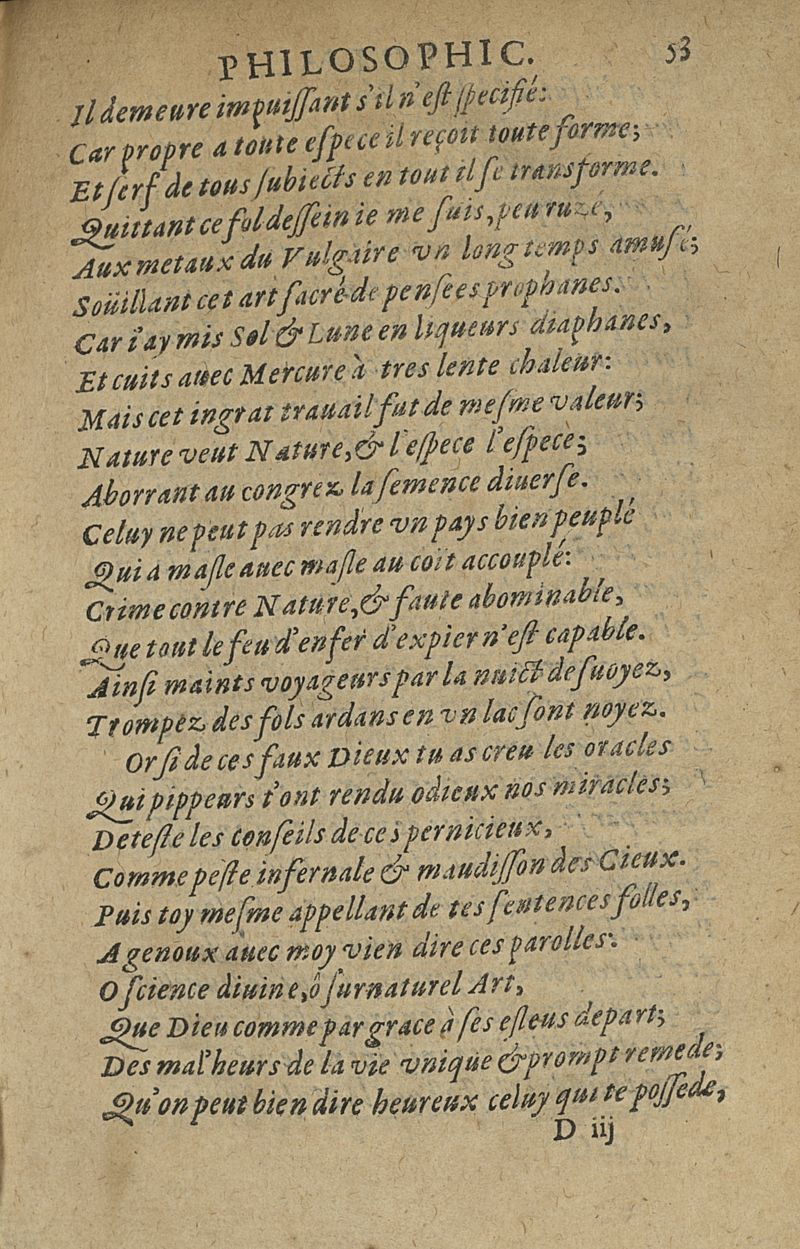 PHILOSOPHIC. 53
Il demeure impuiſſant s'il n'eſt ſpecifié:
Car propre a toute eſpece il reçoit toute forme;
Et ſerf de tous ſubiects en tout il ſe transforme.
Quittant ce fol deſſein ie me ſuis, peu ruzé,
Aux metaux du Vulgaire vn long temps amuſé;
Soüillant cet art ſacré de penſees prophanes.
Car i'ay mis Sol & Lune en liqueurs diaphanes,
Et cuits auec Mercure à tres lente chaleur:
Mais cet ingrat trauail fut de meſme valeur;
Nature veut Nature, & l'eſpece l'eſpece;
Aborrant au congrez la ſemence diuerſe.
Celuy ne peut pas rendre vn pays bien peuplé
Qui a maſle auec maſle au coït accouplé:
Crime contre Nature, & faute abominable,
Que tout le feu d'enfer d'expier n'eſt capable.
Ainſi maints voyageurs par la nuict deſuoyez,
Trompez des fols ardans en vn lac ſont noyez.
Or ſi de ces faux Dieux tu as creu les oracles
Qui pippeurs t'ont rendu odieux nos miracles;
Deteſte les conſeils de ces pernicieux,
Comme peſte infernale & maudiſſon des Cieux.
Puis toy meſme appellant de tes ſentences folles,
A genoux auec moy vien dire ces parolles:
O ſcience diuine, ô ſurnaturel Art,
Que Dieu comme par grace à ſes eſleus depart;
Des mal'heurs de la vie vnique & prompt remede;
Qu'on peut bien dire heureux celuy qui te poſſede,
D iij